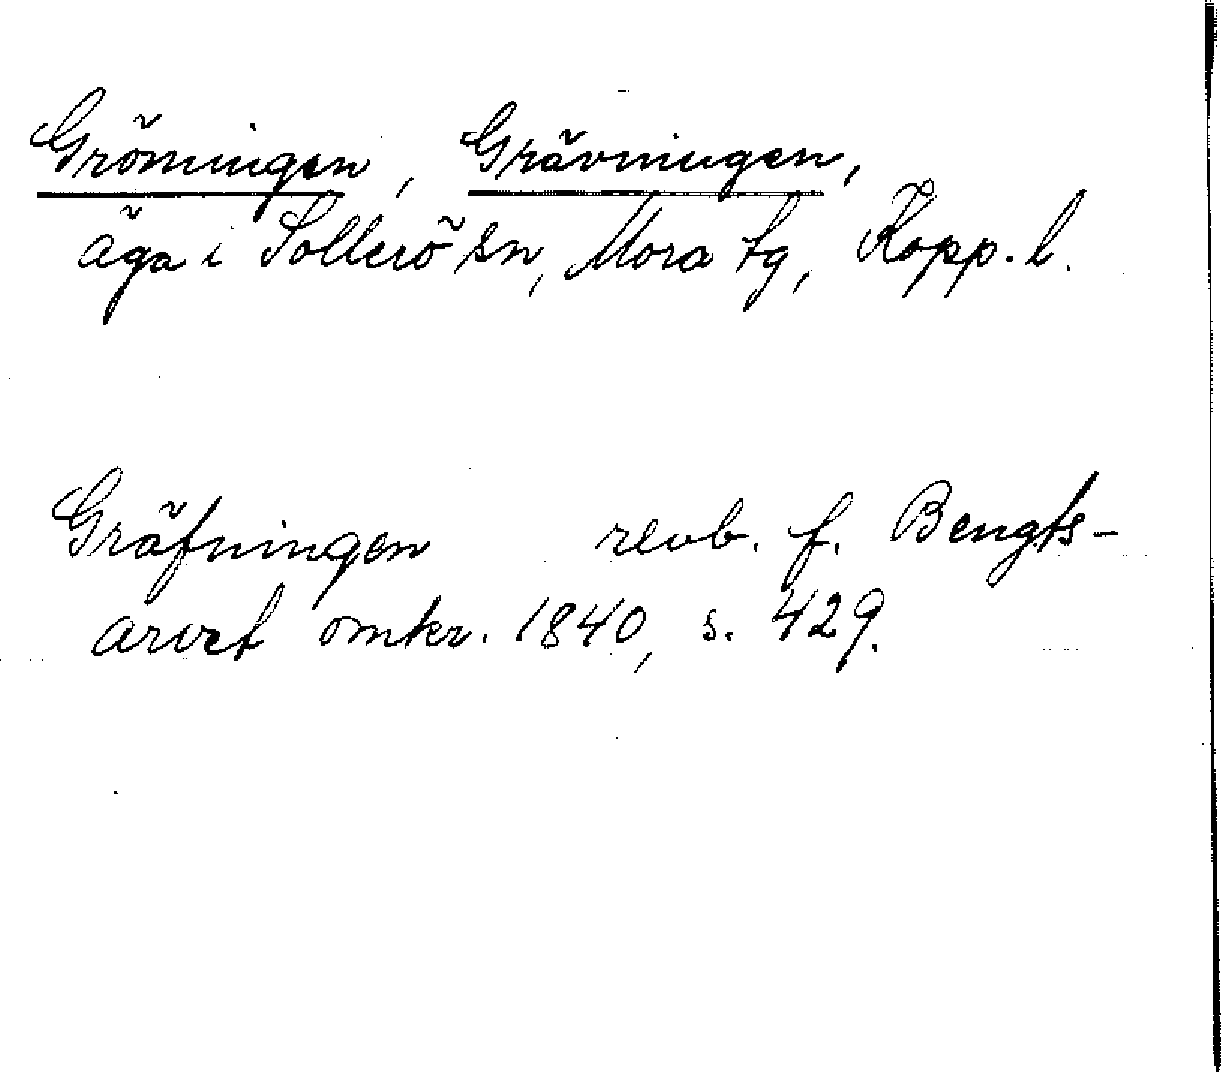 Gröningen, Grävningen,
äga i Sollerö sn, Mora tg, Kopp. l.
Gräfningen revb. f. Bengts-
arvet omkr. 1840, s. 429.